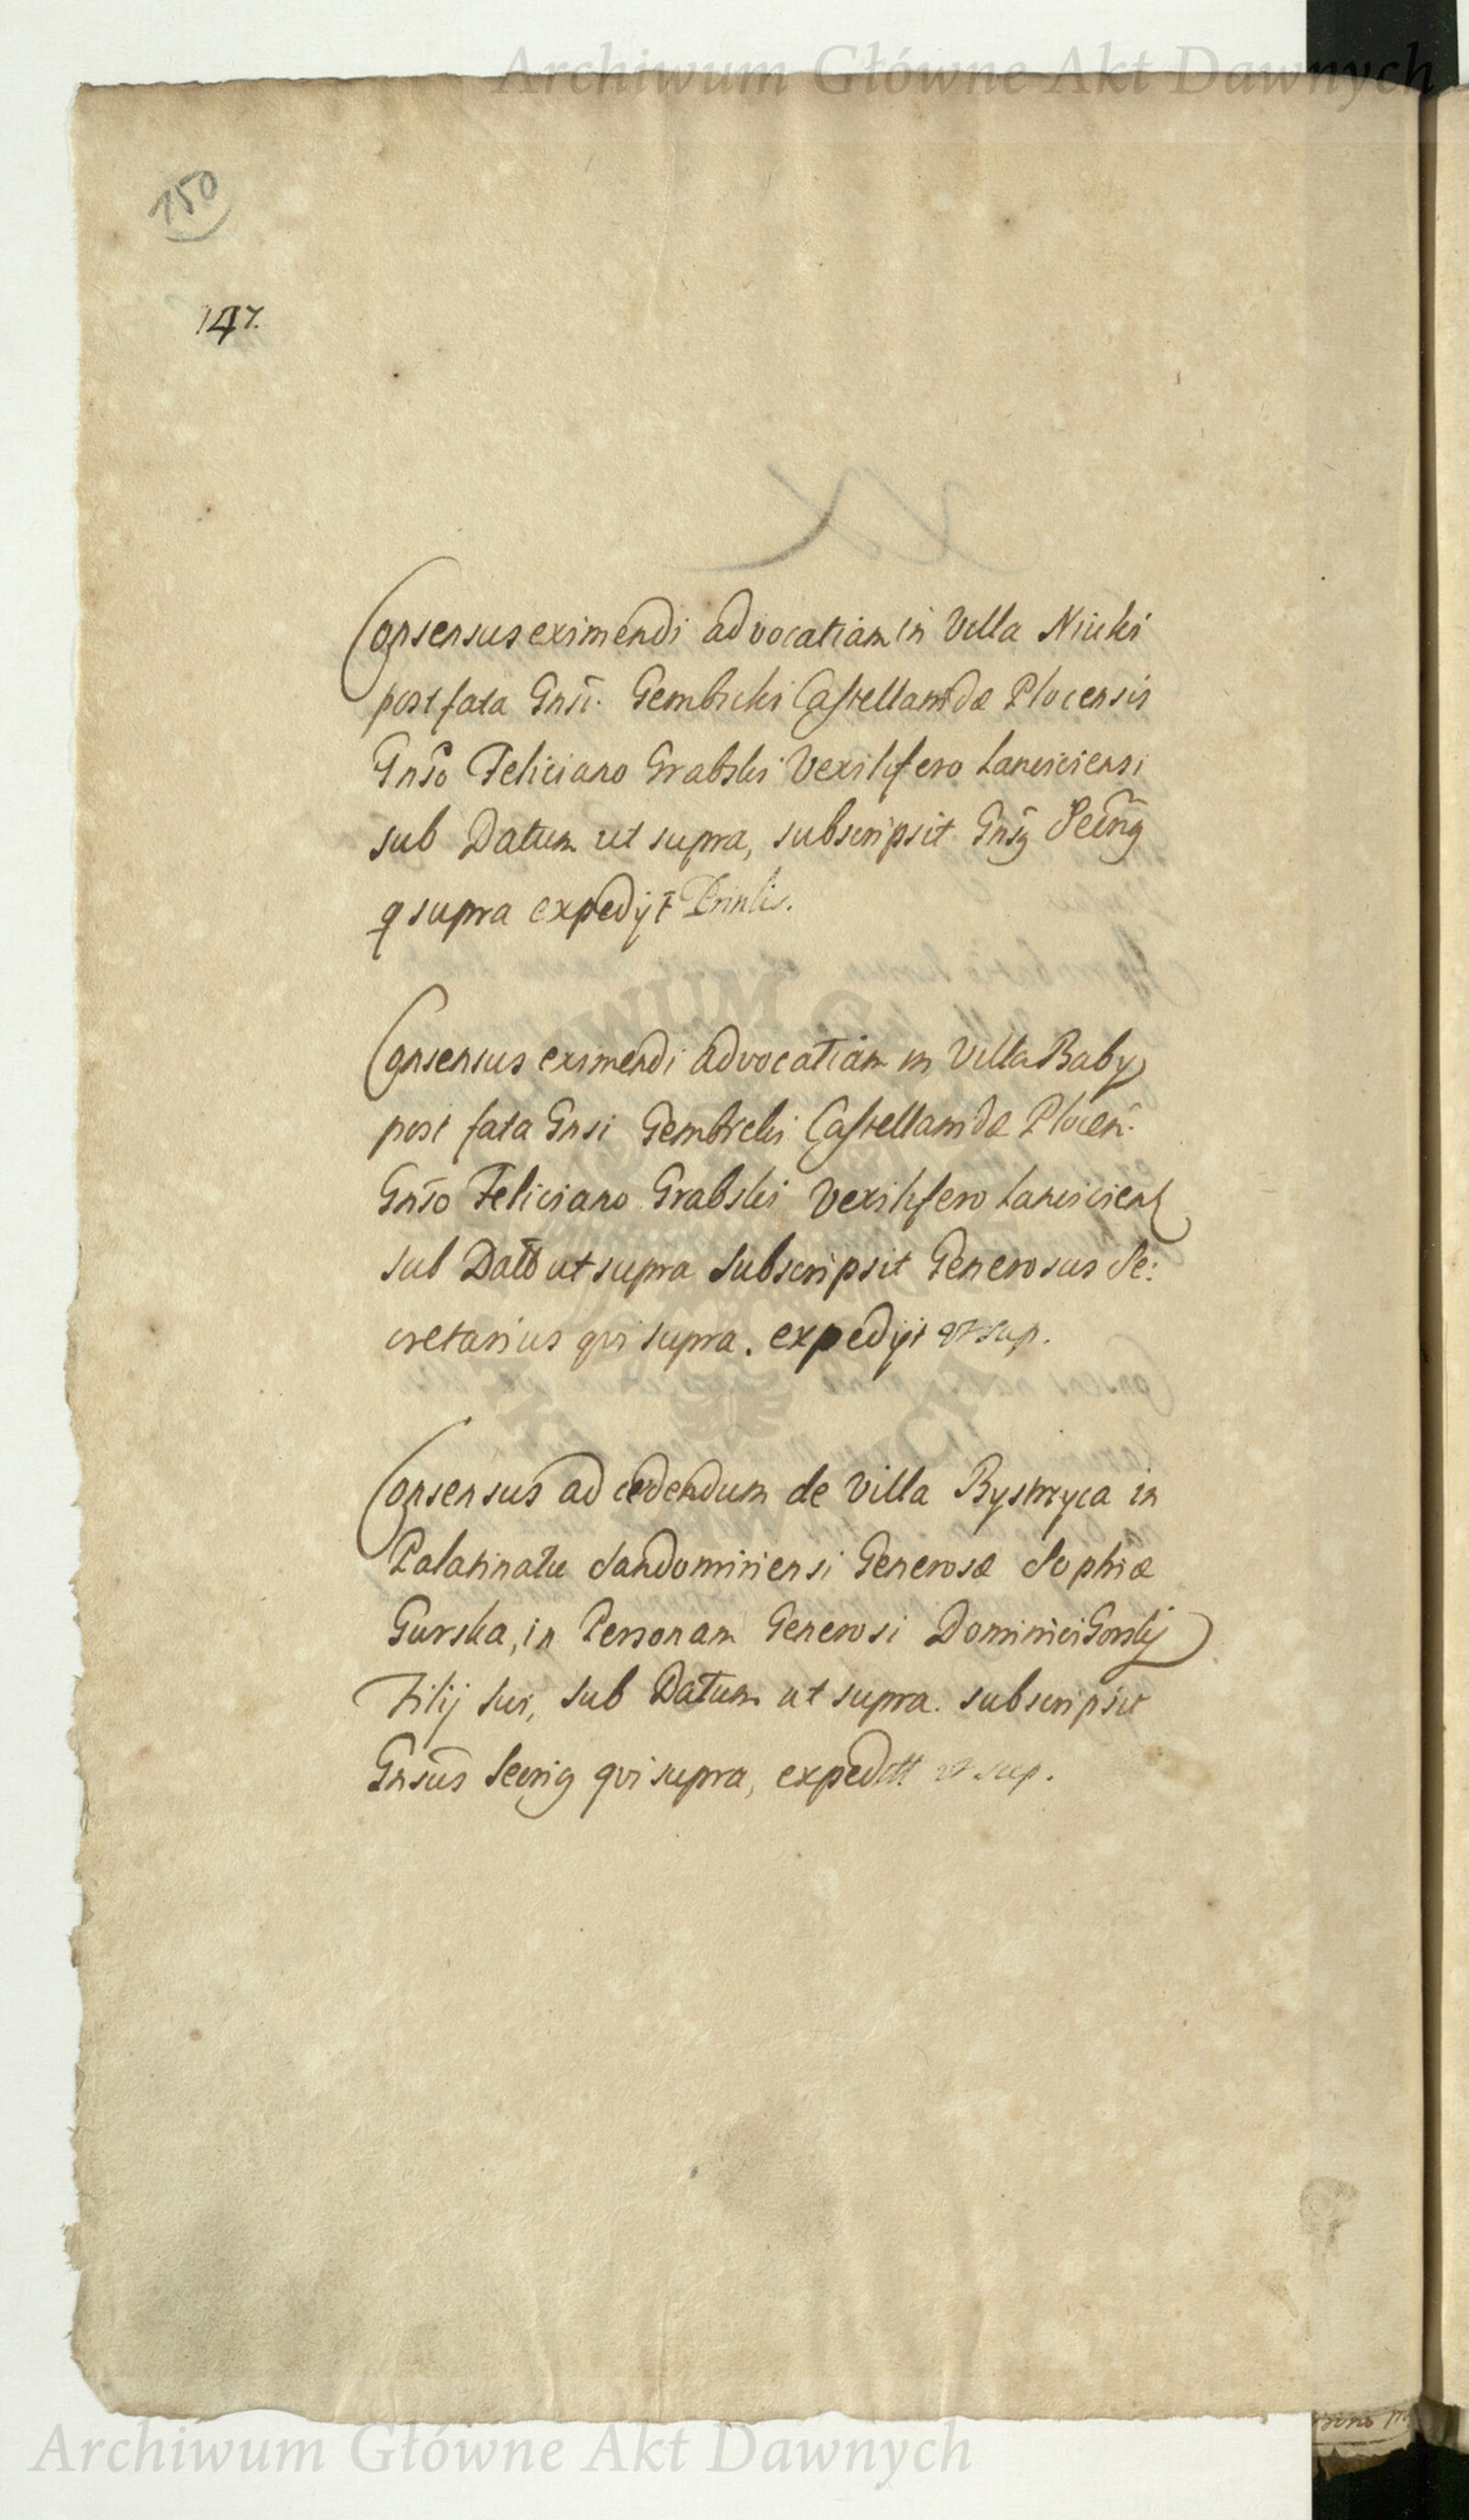 Archiwum Główne Akt Dawnych
150
147.
Consensus eximendi advocatiam in Villa Niicki
post fata Gnsi. Gembicki Castellanidæ Plocensis
Gnso Feliciano Grabski Vexilifero Lanciciensi
sub Datum ut supra, subscripsit Gnsq Secrnq
q supra expedyt
Consensus eximendi advocatiam in Villa Baby
post fata Gnsi Gembicki Castellanidæ Plocen.
Gnso Feliciano Grabski Vexilifero Lancicien
sub Datt ut supra subscripsit Generosus Se:
cretarius qui supra. expedyt ut sup.
Consensus ad cedendum de Villa Bystrzyca in
Palatinatu Sandomiriensi Generosæ Sophiæ
Gurska, in Personam Generosi Dominici Gorskij
Filij sui, sub Datum ut supra. subscripsit
Gnsus Secriq qui supra, expeditt ut sup.
Archiwum Główne Akt Dawnych